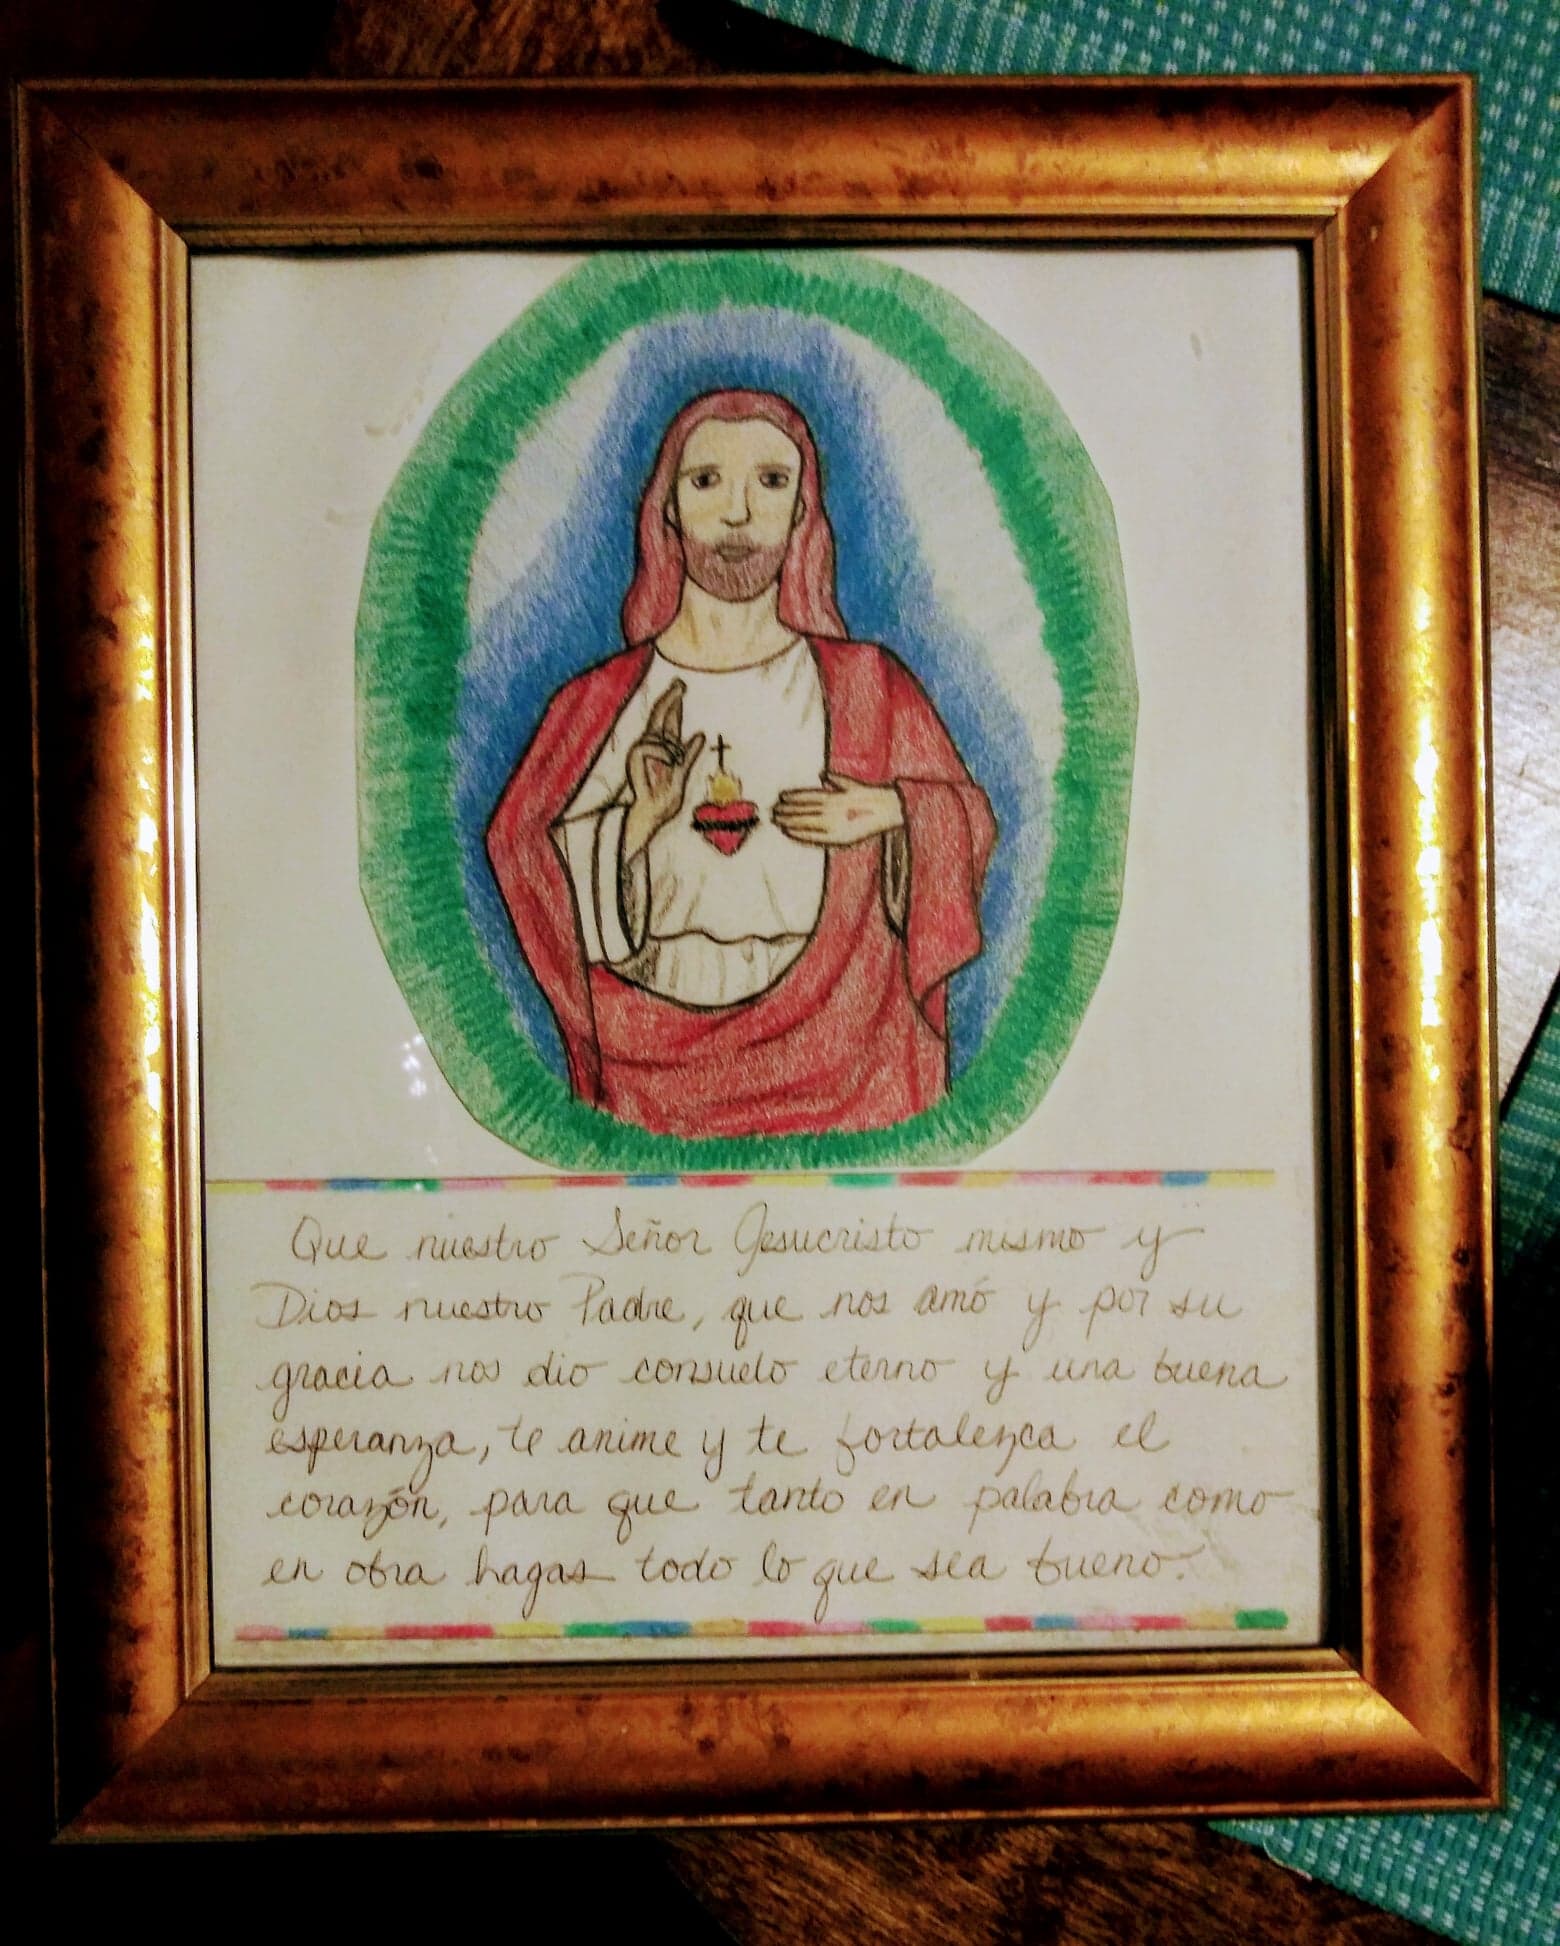 Que nuestro Señor Jesucristo mismo y
Dios nuestro Padre, que nos amó y por su
gracia nos dio consuelo eterno y una buena
esperanza, te anime y te fortalezca el
corazón, para que tanto en palabra como
en obra hagas todo lo que sea bueno.